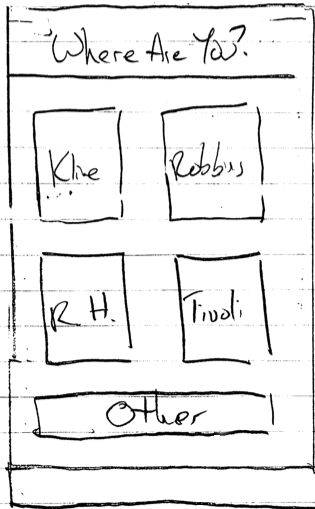 Where Are You?
Kline
Robbins
R.H.
Tivoli
Other